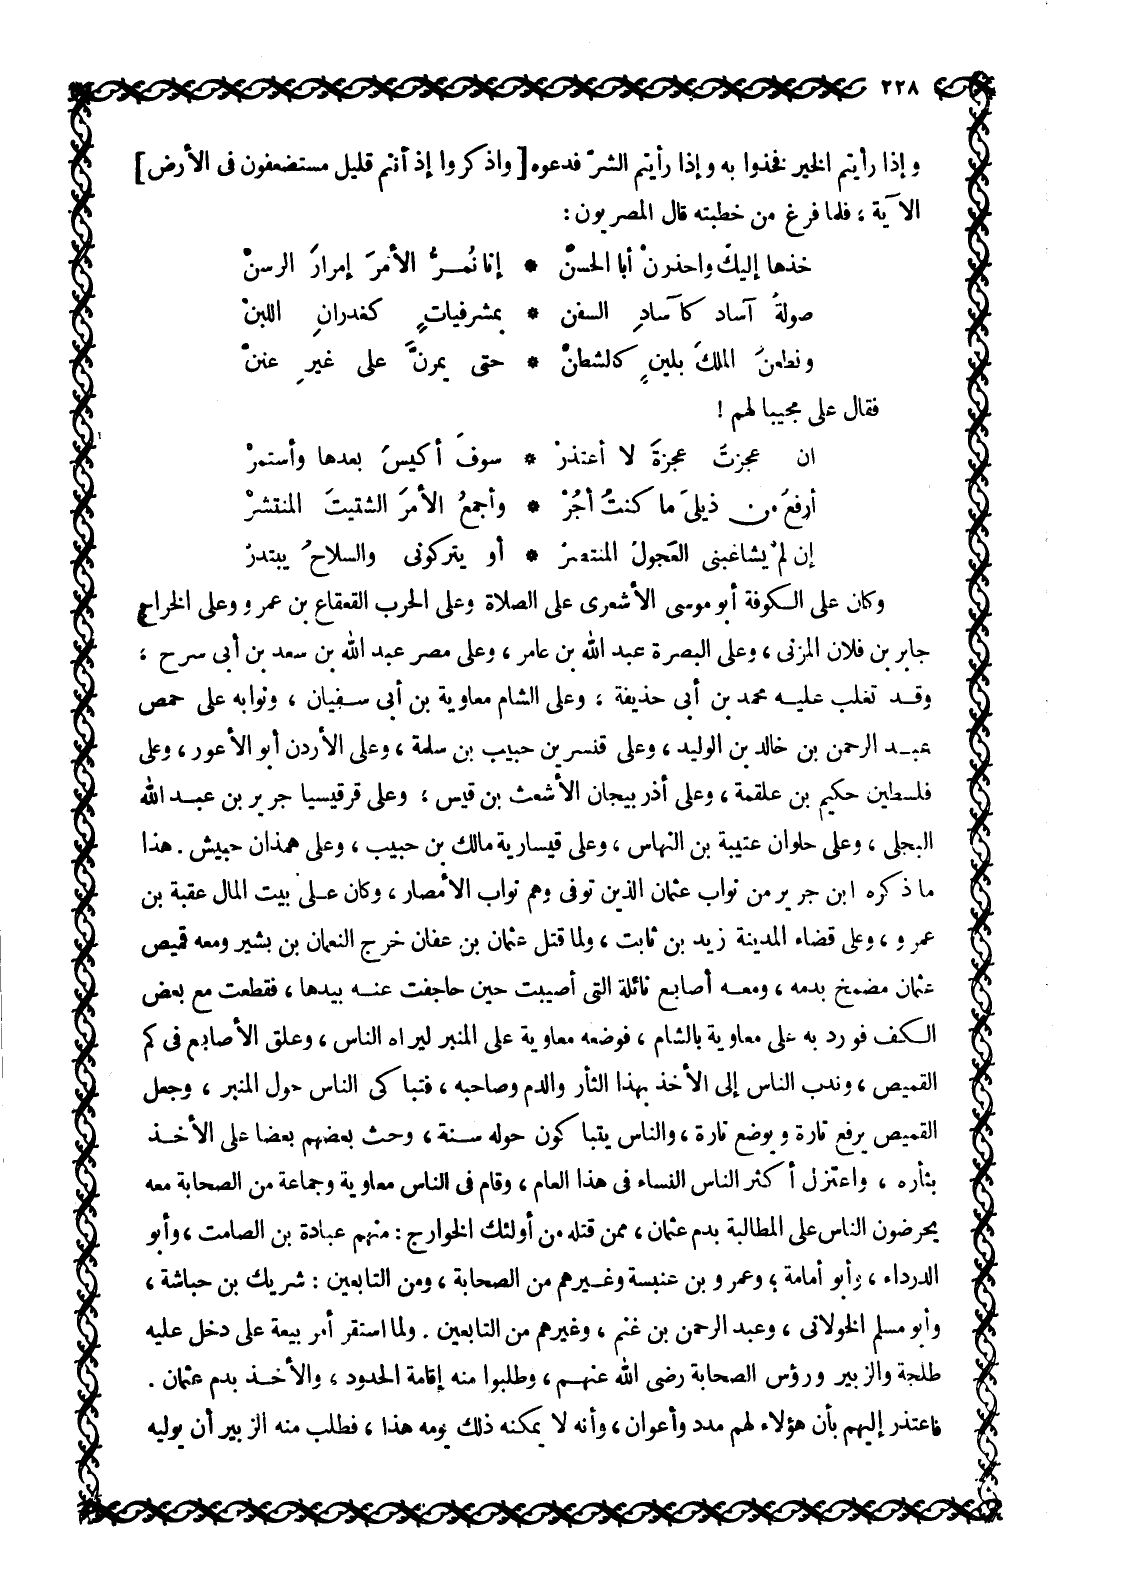 ٢٢٨
وإذا رأيتم الخير فخذوا به وإذا رأيتم الشرّ فدعوه [واذكروا إذ أنتم قليل مستضعفون فى الأرض]
الآية ، فلما فرغ من خطبته قال المصريون :
خذها إليكَ واحذرنْ أبا الحسنْ * إنا نُمـرُّ الأمرَ إمرارَ الرسنْ
صولةُ آسادٍ كآسادِ السفن * بمشرفياتٍ كغدرانِ اللبنْ
ونطعنُ الملكَ بلينٍ كالشطنْ * حتى يمرنَّ على غيرِ عننْ
فقال على مجيبا لهم !
ان عجزتُ عجزةً لا أعتذرْ * سوفَ أكيسُ بعدها وأستمرْ
أرفعُ من ذيلىَ ما كنتُ أجُرْ * وأجمعُ الأمرَ الشتيتَ المنتشرْ
إن لمْ يشاغبنى العَجولُ المنتصرْ * أو يتركونى والسلاحُ يبتدرْ
وكان على الكوفة أبو موسى الأشعرى على الصلاة وعلى الحرب القعقاع بن عمرو وعلى الخراج
جابر بن فلان المزنى ، وعلى البصرة عبد الله بن عامر ، وعلى مصر عبد الله بن سعد بن أبى سرح ،
وقد تغلب عليه محمد بن أبى حذيفة ، وعلى الشام معاوية بن أبى سفيان ، ونوابه على حمص
عبد الرحمن بن خالد بن الوليد ، وعلى قنسرين حبيب بن سلمة ، وعلى الأردن أبو الأعور ، وعلى
فلسطين حكيم بن علقمة ، وعلى أذربيجان الأشعث بن قيس ، وعلى قرقيسيا جرير بن عبد الله
البجلى ، وعلى حلوان عتيبة بن النهاس ، وعلى قيسارية مالك بن حبيب ، وعلى همذان حبيش . هذا
ما ذكره ابن جرير من نواب عثمان الذين توفى وهم نواب الأمصار ، وكان على بيت المال عقبة بن
عمرو ، وعلى قضاء المدينة زيد بن ثابت ، ولما قتل عثمان بن عفان خرج النعمان بن بشير ومعه قميص
عثمان مضمخ بدمه ، ومعه أصابع نائلة التى أصيبت حين حاجفت عنه بيدها ، فقطعت مع بعض
الكف فورد به على معاوية بالشام ، فوضعه معاوية على المنبر ليراه الناس ، وعلق الأصابع فى كم
القميص ، وندب الناس إلى الأخذ بهذا الثأر والدم وصاحبه ، فتباكى الناس حول المنبر ، وجعل
القميص يرفع تارة ويوضع تارة ، والناس يتباكون حوله سنة ، وحث بعضهم بعضا على الأخذ
بثأره ، واعتزل أكثر الناس النساء فى هذا العام ، وقام فى الناس معاوية وجماعة من الصحابة معه
يحرضون الناس على المطالبة بدم عثمان ، ممن قتله من أولئك الخوارج : منهم عبادة بن الصامت ، وأبو
الدرداء ، وأبو أمامة ، وعمرو بن عنبسة وغيرهم من الصحابة ، ومن التابعين : شريك بن حباشة ،
وأبو مسلم الخولانى ، وعبد الرحمن بن غنم ، وغيرهم من التابعين . ولما استقر أمر بيعة على دخل عليه
طلحة والزبير ورؤس الصحابة رضى الله عنهم ، وطلبوا منه إقامة الحدود ، والأخذ بدم عثمان .
فاعتذر إليهم بأن هؤلاء لهم مدد وأعوان ، وأنه لا يمكنه ذلك يومه هذا ، فطلب منه الزبير أن يوليه